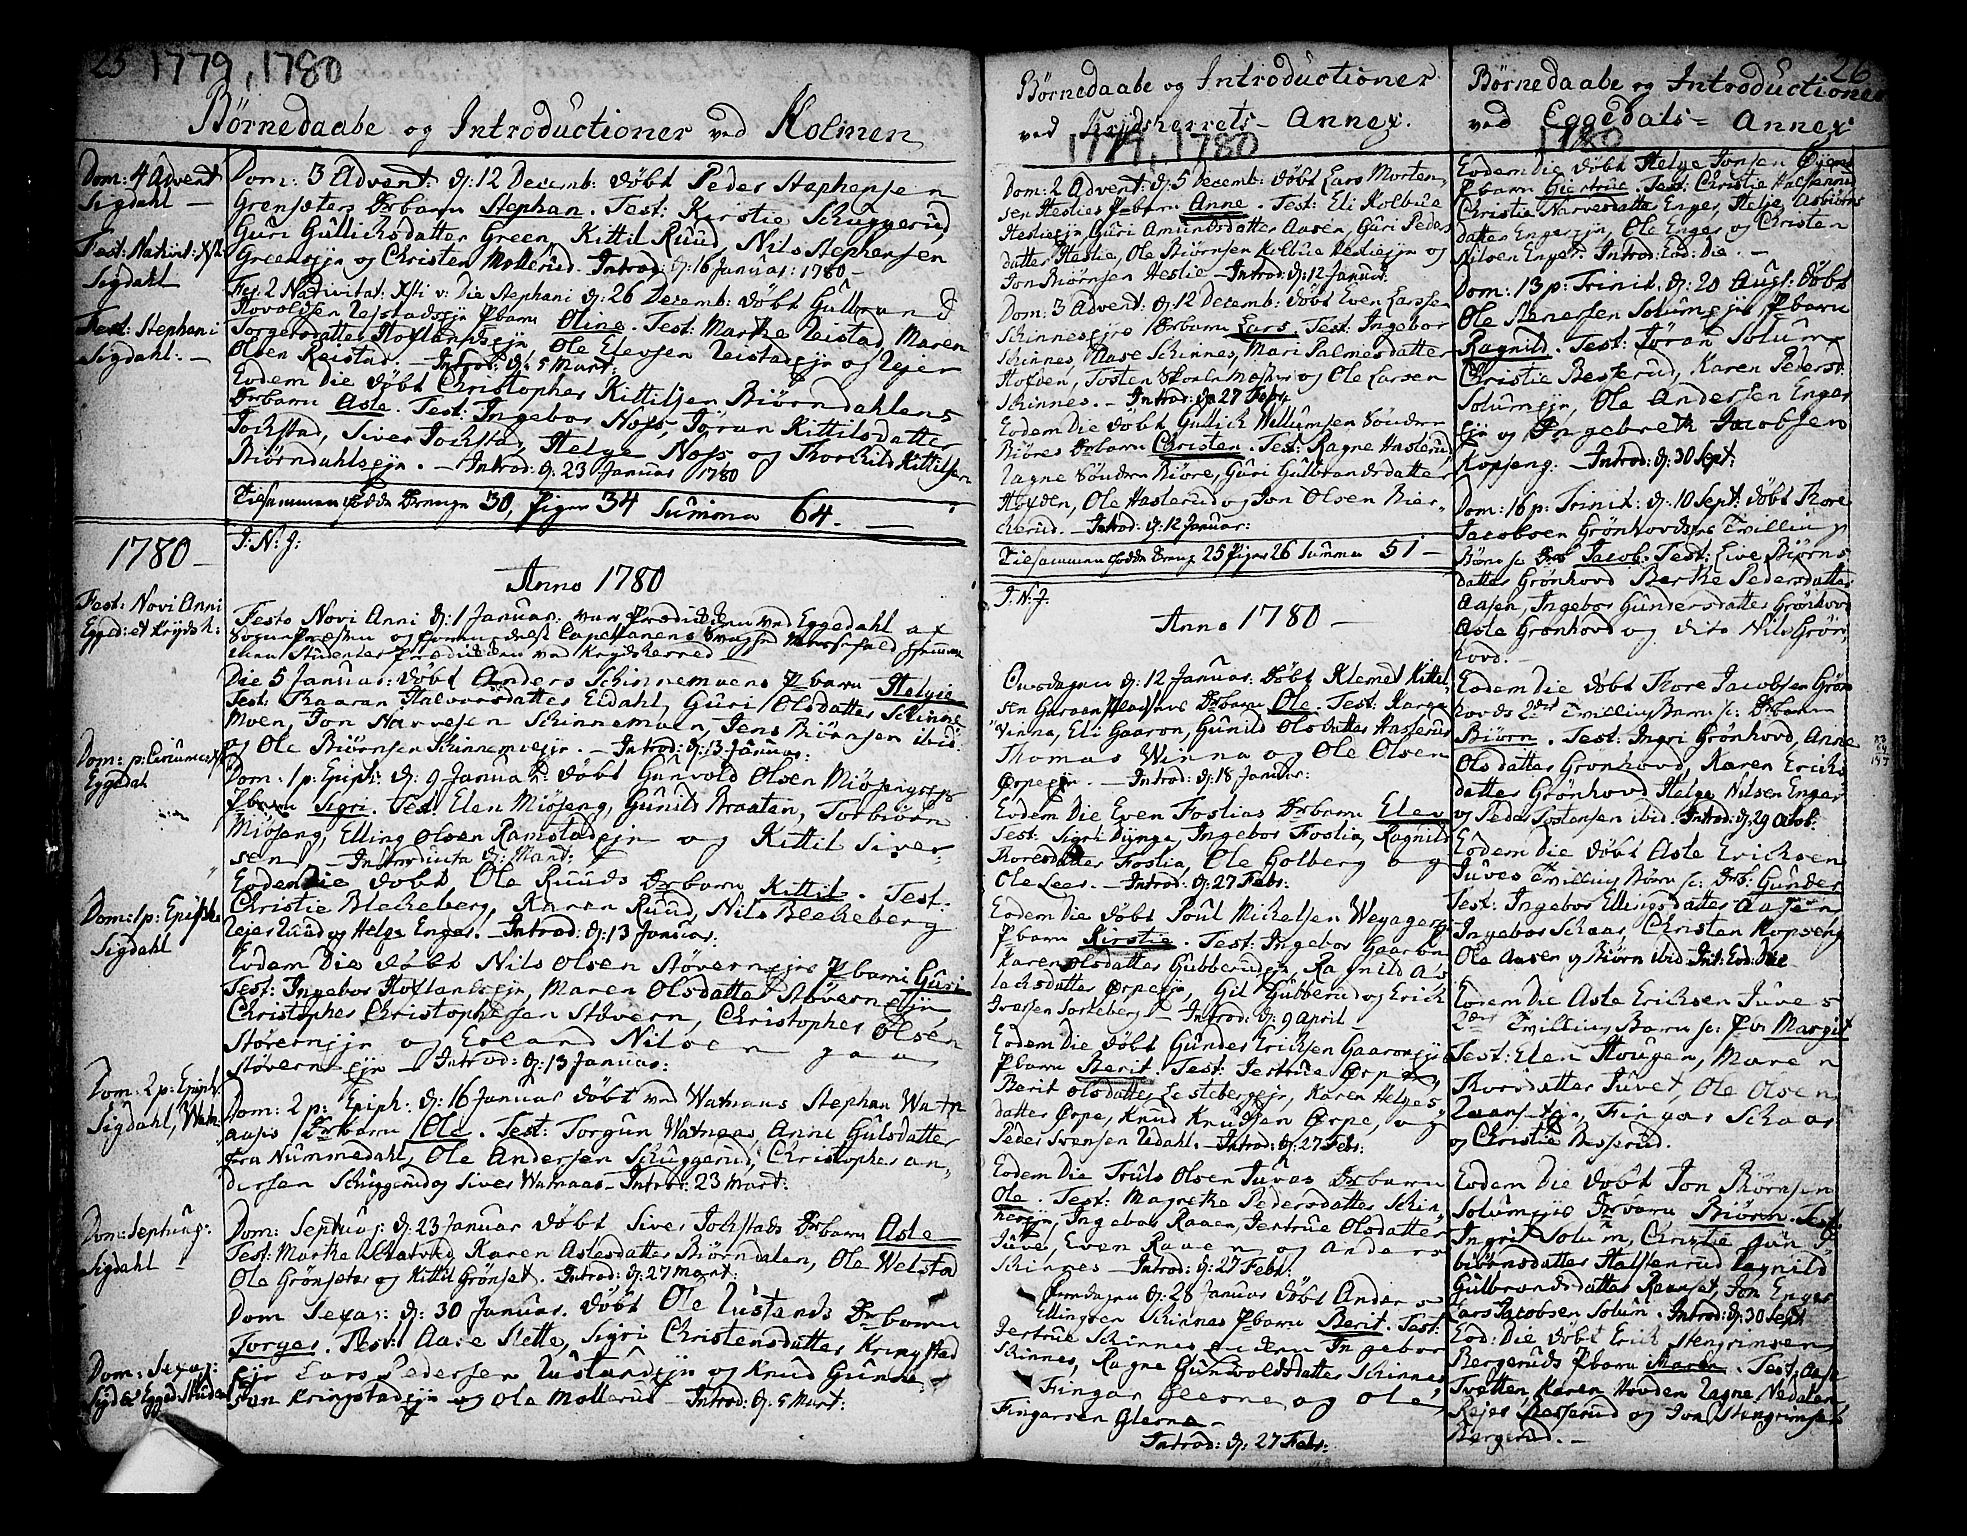 25 1779, 1780
Børnedaabe og Introductioner ved Holmen
Dom: 4 Advent
Sigdahl —
Fest: Nativit: Xsti
Sigdahl
Fest: Stephani
Sigdahl: —
1780 —
Fest: Novi Anni
Egged: et Krydsh:
Eggedal
Dom: 1 p: Epiph:
Sigdahl
Dom: 2 p: Epiph:
Sigdahl, Watn:
Dom: Septuag:
Sigdahl —
Dom: Sexag:
Dom: 3 Advent: d: 12 Decemb: døbt Peder Stephensen
Grensæters Drbarn Stephan. Test: Kirstie Schuggerud,
Guri Gullichsdatter Green, Kittil Ruud, Nils Stephensen
Greensejn og Christen Mollerud. Introd: d: 16 Januar: 1780 —
Fer: 2 Nativitat: Xsti v: Die Stephani d: 26 Decemb: døbt Gulbrand
Pbarn Oline. Test: Marthe Reistad, Maren
Torgersdatter Hoflandsejn, Ole Elevsen Reistadejn og Rejer
Olsen Reistad. — Introd: d: 5 Mart:
Eodem Die døbt Christopher Kittilsen Biørndahlens
Drbarn Asle. Test: Ingebor Noss, Jøran Kittilsdatter
Jockstad, Siver Jockstad, Helge Noss og Thorchild Kittilsen
Biørndahlsejn. — Introd: d: 23 Januar 1780
Tilsammen fødde Drenge 30, Piger 34 Summa 64. —
J: N: J:
Anno 1780
Festo Novi Anni d: 1 Januar: var Prædiken ved Eggedahl af
Die 5 Januar: døbt Anders Schinnemoens Pbarn Helgie
Test: Baaran Halvorsdatter Eidahl, Guri Olsdatter Schinne
Moen, Jon Narvesen Schinnemoen, Jens Biørnsen ibid:
og Ole Biørnsen Schinnemoejn. — Introd: d: 13 Januar:
Dom: 1 p: Epiph: d: 9 Januar: døbt Gunvold Olsen Miøsengejrs
Pbarn Sigri. Test: Elen Miøseng, Gunild Braaten, Torbiørn
Miøseng, Elling Olsen Ramstadejn og Kittil Siver-
sen. — Introducta d: Mart:
Eodem Die døbt Ole Ruuds Drbarn Kittil. Test:
Christie Bleckeberg, Karen Ruud, Nils Bleckeberg
Rejer Ruud og Helge Enger. — Introd: d: 13 Januar:
Eodem Die døbt Nils Olsen Støvernejrs Pbarn Guri
Test: Ingebor Hoflandsejn, Maren Olsdatter Støvernejn
Christopher Christophersen Støvern, Christopher Olsen
Støvernejn og Erland Nilsen
Støvernejn — Introd: d: 13 Januar:
Dom: 2 p: Epiph: d: 16 Januar døbt ved Watnaas Stephan Watn
aases Drbarn Ole. Test: Torgun Watnaas, Anne Gulsdatter
fra Nummedahl, Ole Andersen Schuggerud, Christopher An-
dersen Schuggerud og Siver Watnaas — Introd: 23 Mart:
Dom: Septuag: d: 23 Januar døbt Siver Jockstads Drbarn Asle
Test: Marthe Karen Aslesdatter Biørndalen, Ole Welstad
Ole Grønseter og Kittil Grønset. Introd: d: 27 Mart:
Dom Sexag: d: 30 Januar. døbt Ole Lustands Drbarn
Torger. Test: Aase Slette, Sigri Christensdatter Kringstad
ejn Lars Pedersen Lustandejn og Knud Gunne-
sen Kringstadejn og Ole Mollerud — Introd: d: 5 Mart:
Børnedaabe og Introductioner
ved Krydsherrets — Annex.
1779, 1780
Dom: 2 Advent: d: 5 Decemb: døbt Lars Morten
sen Heslies Pbarn Anne. Test: Eli Kolbue
Hesliesjn, Guri Amundsdatter Aasen, Guri Peders
datter Heslie, Ole Biørnsen Kolbue Hesliesjn og
Jon Biørnsen Heslie — Introd: d: 12 Januar:
Dom: 3 Advent: d: 12 Decemb: døbt Even Larssen
Schinnesejrs Drbarn Lars. Test: Ingebor
Schinnes, Aase Schinnes, Mari Palmesdatter
Hofden, Tosten Skolemester og Ole Larsen
Schinnes. — Introd: d: 27 Febr.
Eodem Die døbt Gullich Willumsen Søndre
Biøres Drbarn Christen. Test: Ragne Haslerud,
Ragne Søndre Biøre, Guri Gulbrandsdatter
Hofden, Ole Haslerud og Jon Olsen Bier-
cherud. — Introd: d: 12 Januar:
Tilsammen fødde Dreng 25 Piger 26 Summa 51 —
J: N: J:
Anno 1780 —
Onsdagen d: 12 Januar. døbt Klemet Kittil
sen Drbarn Ole. Test: Karen
Winna, Eli Gaaron, Gunild Olsdatter Haslerud
Thomas Winna og Ole Olsen
Ørpesjn. — Introd: d: 18 Januar:
Eodem Die Even Foslias Drbarn Elev
Test: Sigri Dynge, Ingebor Foslia, Ragnild
Thoresdatter Foslia, Ole Golberg og
Ole Lees. — Introd: d: 27 Febr:
Eodem Die døbt Poul Michelsen
Pbarn Kirstie. Test: Ingebor Gaaron,
Karen Olsdatter Gubberudejn, Ragnild As
lachsdatter Ørpesjn, Gul Gubberud og Erick
Iversen Sorteberg — Introd: d: 9 April —
Eodem Die døbt Gunder Ericksen Gaaronsejrs
Pbarn Berit. Test: Jertrue Ørpen,
Berit Olsdatter Lesteberg, Karen Helges
datter Ørpe, Knud Knudsen Ørpe, og
Peder Svensen Medahl. — Introd: d: 27 Febr:
Eodem Die Truls Olsen Juves Drbarn
Ole. Test: Magrethe Pedersdatter Schin-
nesejn, Ingebor Raaen, Jertrue Olsdatter
Juve, Even Raaen og Anders
Schinnes — Introd: d: 27 Febr.
Fredagen d: 28 Januar døbt Anders
Ellingsen Schinnes Pbarn Berit. Test:
Jertrue Schinnes Ingebor
Schinnes, Ragne Gunvoldsdatter Schinnes
Fingar Glesne, og Ole
Fingarsen Glesne —
Introd: d: 27 Febr:
26
Børnedaabe og Introductioner
ved Eggedals — Annex
1780
Eodem Die døbt Helge Jonsen
Pbarn Giertrue. Test: Christie
Christie Narvesdatter Enger, Helje Asbiørns
datter Engersjn, Ole Enger og Christen
Nilsen Enger. Introd: Eod: Die. —
Dom: 13 p: Trinit. d: 20 Aug: døbt
Ole Stenersen Solumsejrs Pbarn
Ragnild. Test: Jøran Solum
Christie Besserud, Karen Pedersd.
Solumsejn, Ole Andersen Enger
sjn og Ingebreth Jacobsen
Kopseng. — Introd: d: 30 Sept:
Dom: 16 p: Trinit: d: 10 Sept: døbt Thore
Jacobsen Grønhovds Tvilling
Børn sc: Drb Jacob. Test: Live Biørns
datter Grønhovd Berthe Pedersdatter
Aasen, Ingebor Gundersdatter Grønhovd
Asle Grønhovd og dito Nils Grøn
hovd. —
Eodem Die døbt Thore Jacobsen Grøn
hovds 2den Tvilling Barn sc: Drbarn
Biørn. Test: Ingri Grønhovd, Anne
Olsdatter Grønhovd, Karen Ericks
datter Grønhovd Helge Nilsen Enger
og Peder Tostensen ibid. Introd: d: 29 Octob:
Eodem Die døbt Asle Ericksen
Juves Tvilling Børn sc: Drb: Gunder
Test: Ingebor Ellingsdatter Aasen
Ingebor Schaar, Christen Kopseng
Ole Aasen og Biørn ibid Int: Eod: Die
Eodem Die Asle Ericksen Juves
2den Tvilling Barn sc: Pbr Margit
Test: Elen Hougen, Maren
Thorsdatter Juvet, Ole Olsen
Fingar Schaar
og Christie Besserud.
Eodem Die døbt Jon Biørnsen
Solumsejrs Drbarn Biøren. Test:
Ingri Solum, Christie Gun
biørnsdatter Halstenrud Ragnild
Gulbrandsdatter Raanset, Jon Enger
Lars Jacobsen Solum. Introd: d: 30 Sept
Eod: Die døbt Erick Stengrimsen
Bergeruds Pbarn Maren. Test: Aase
Tvetten, Karen Hovden Ragne Nedalen
Rejer Besserud og Jon Stengrimsen
Bergerud. —